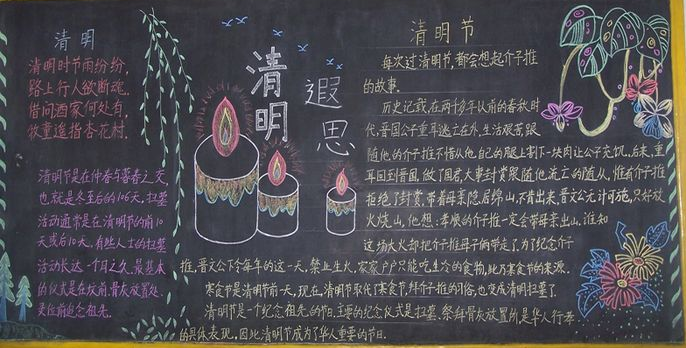 清明
清明时节雨纷纷,
路上行人欲断魂.
借问酒家何处有,
牧童遥指杏花村.
清明节是在仲春与暮春之交,
也就是冬至后的106天,扫墓
活动通常是在清明节的前10
天或后10天.有些人士的扫墓
活动长达一个月之久.最基本
的仪式是在坟前、骨灰放置处
灵位前追念祖先.
清明
遐思
清明节
每次过清明节,都会想起介子推
的故事.
历史记载,在两千多年以前的春秋时
代,晋国公子重耳逃亡在外,生活艰苦跟
随他的介子推不惜从自己的腿上割下一块肉让公子充饥.后来,重
耳回到晋国,做了国君大事封赏跟随他流亡的随从,惟有介子推
拒绝了封赏,带着母亲隐居绵山,不肯出来,晋文公无计可施,只好放
火烧山,他想:孝顺的介子推一定会带母亲出山.谁知
这场大火却把介子推母子俩带走了.为了纪念介子
推,晋文公下令每年的这一天,禁止生火,家家户户只能吃生冷的食物,此乃寒食节的来源.
寒食节是清明节前一天,现在,清明节取代了寒食节,拜介子推的习俗,也变成清明扫墓了.
清明节是一个纪念祖先的节日.主要的纪念仪式是扫墓、祭拜骨灰放置所是华人行孝
的具体表现,因此清明节成为了华人重要的节日.